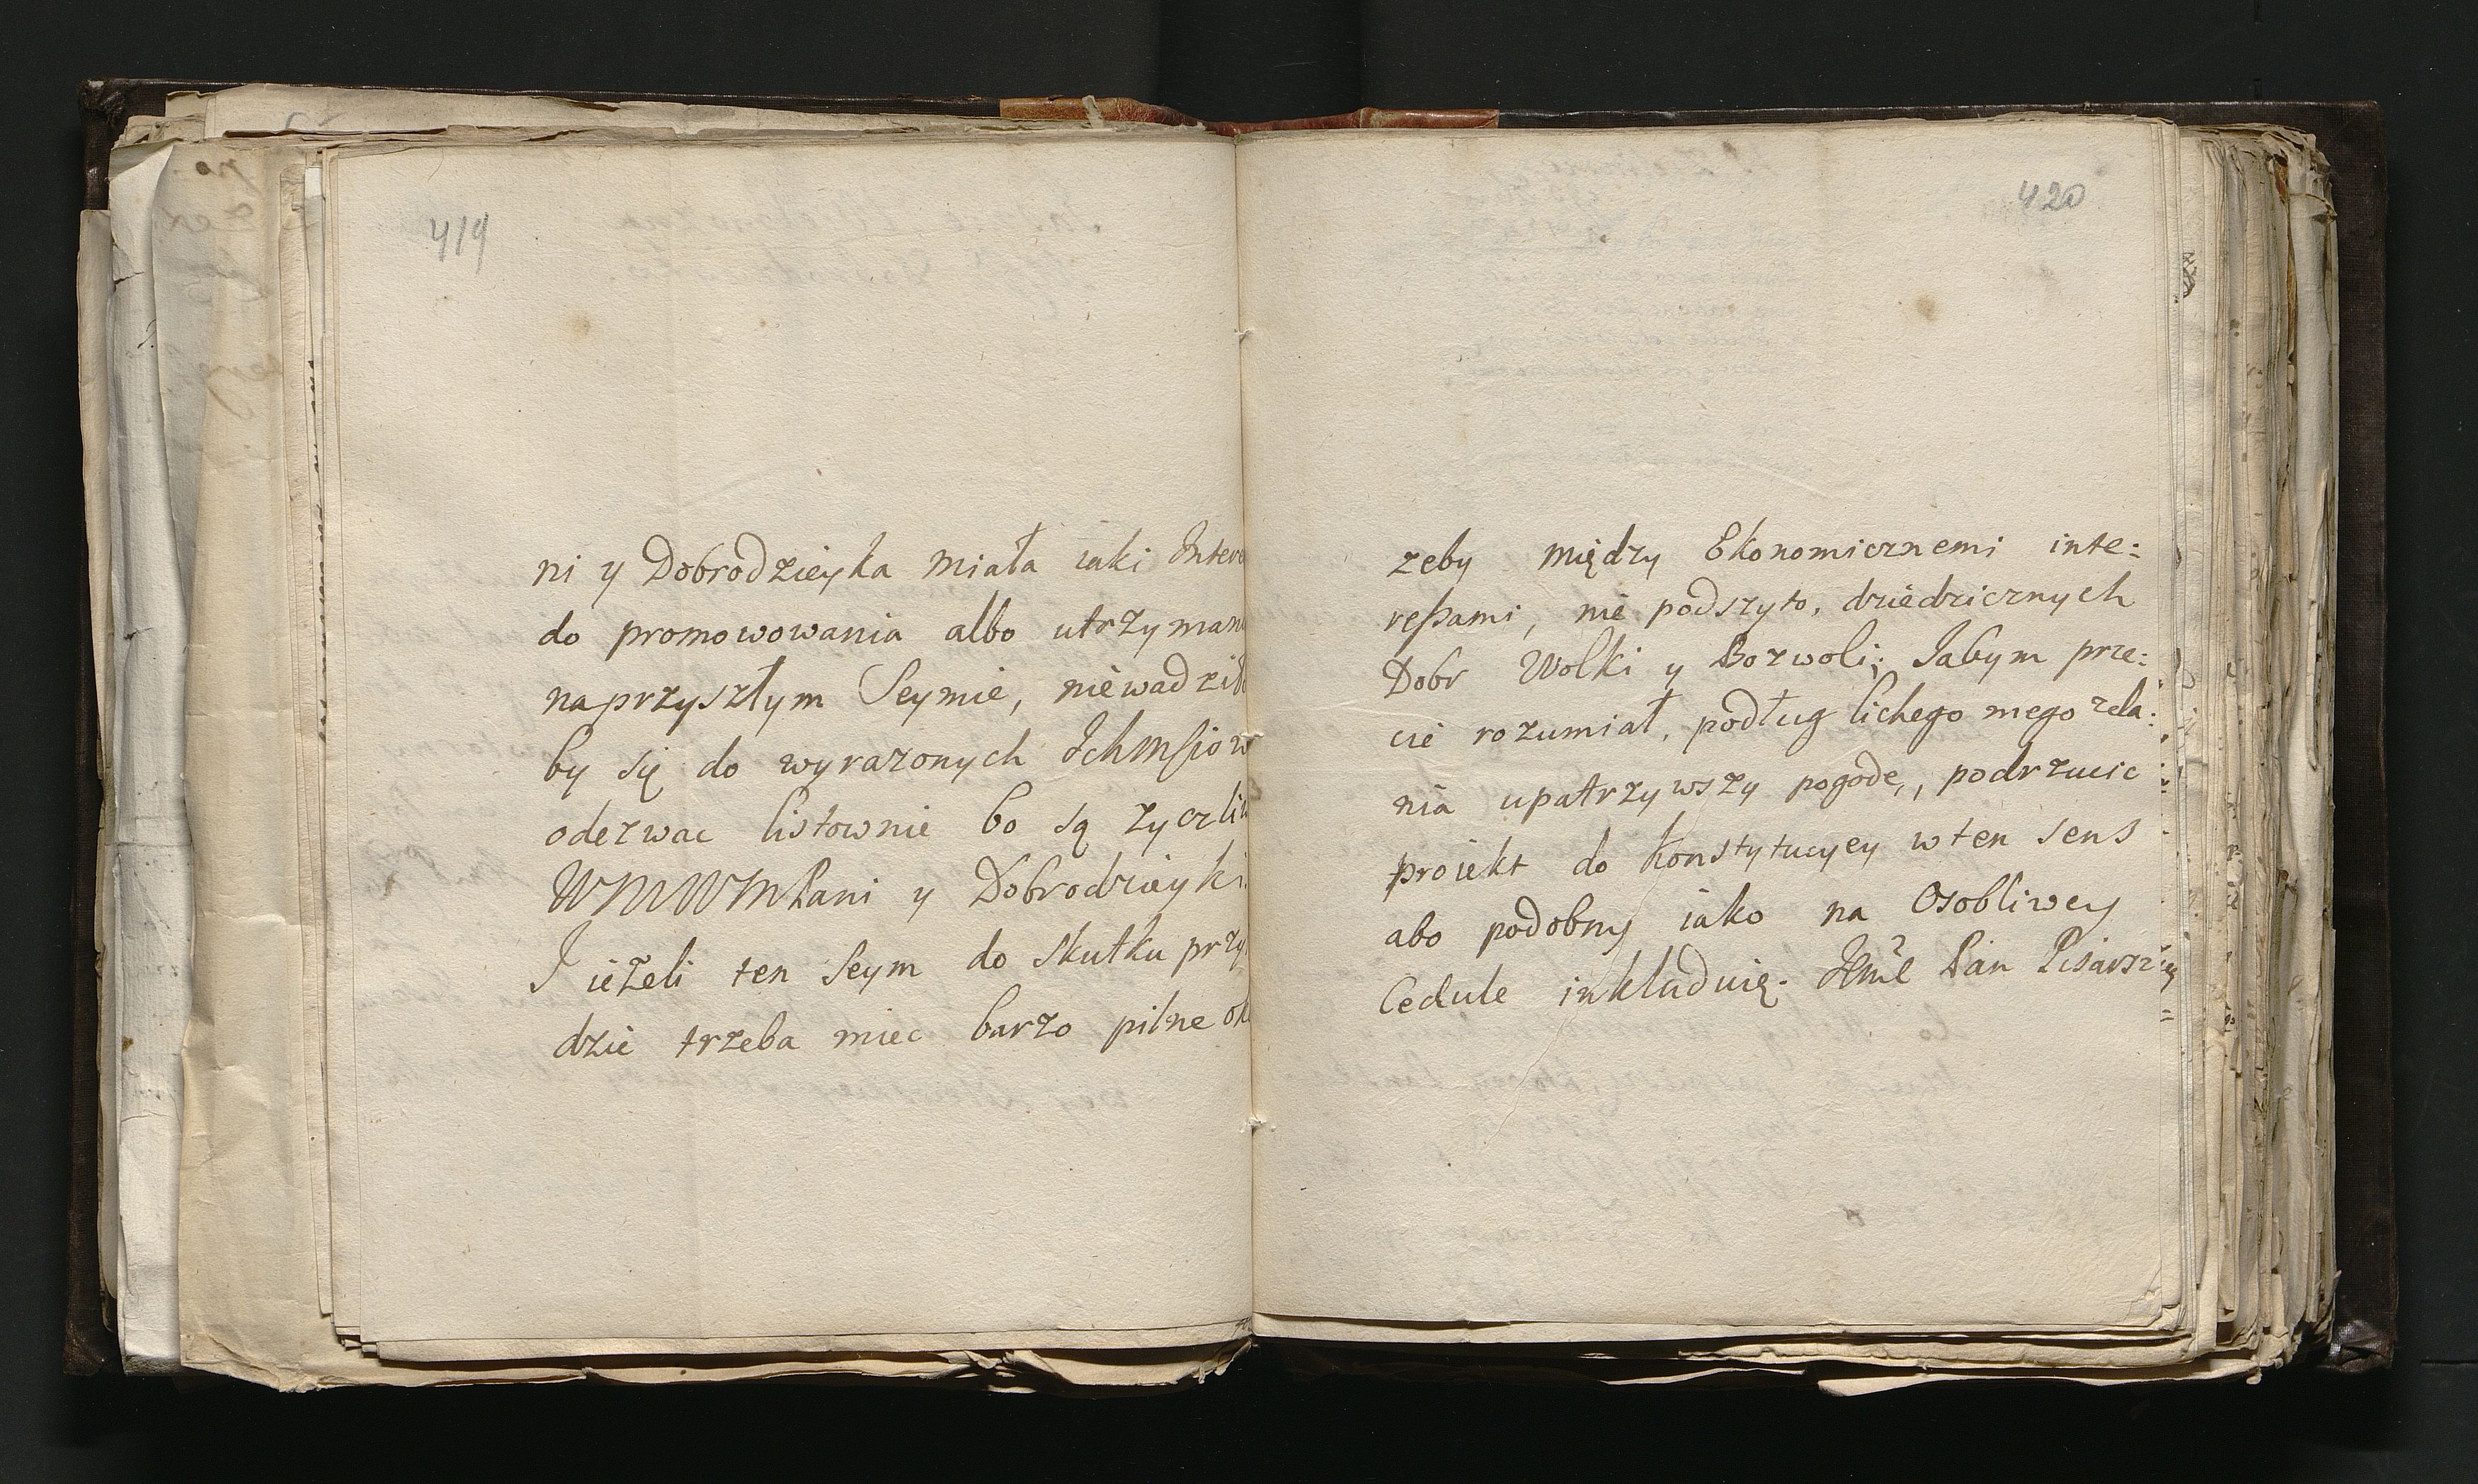 419
ni y Dobrodzieyka miała iaki Intere
do promowowania albo utrzyman
na przyszłym Seymie, niewadziło
by się do wyrazonych IchMSiow
odezwac listownie bo są zyczliw
WMWMPani y Dobrodzieyki.
I ieżeli ten Seym do skutku przy
dzie trzeba miec barzo pilne ok
420
zeby między Ekonomicznemi inte:
reßami, nie podszyto, dziedzicznych
Dobr Wolki y Bozwoli; Iabym prze:
cie rozumiał, podług lichego mego zda:
nia upatrzywszy pogodę, podrzucic
proiekt do Konstytucyey w ten sens
abo podobny iako na Osobliwey
Cedule inkluduię. Jmć Pan Pisarz